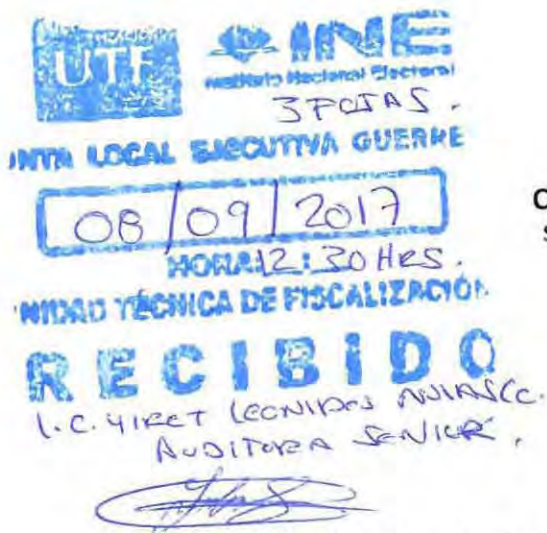 UTF INE
Instituto Nacional Electoral
3 FOJAS.
UNTA LOCAL EJECUTIVA GUERRE
08/09/2017
HORA 12:30 HRS.
UNIDAD TÉCNICA DE FISCALIZACIÓN
RECIBIDO
L.C. YIRET LEONIDES
AUDITORA SENIOR,